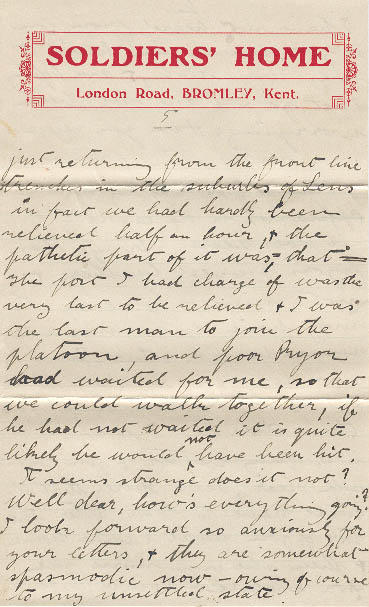 SOLDIERS' HOME
London Road, BROMLEY, Kent.
5
just returning from the front line
trenches in the suburbs of Lens
in fact we had hardly been
relieved half an hour, & the
pathetic part of it was, that =
the post I had charge of was the
very last to be relieved & I was
the last man to join the
platoon, and poor Pryor
had waited for me, so that
we could walk together, if
he had not waited it is quite
likely he would not have been hit.
It seems strange does it not?
Well dear, how's everything going?
I look forward so anxiously for
your letters, & they are somewhat
spasmodic now - owing of course
to my unsettled state.